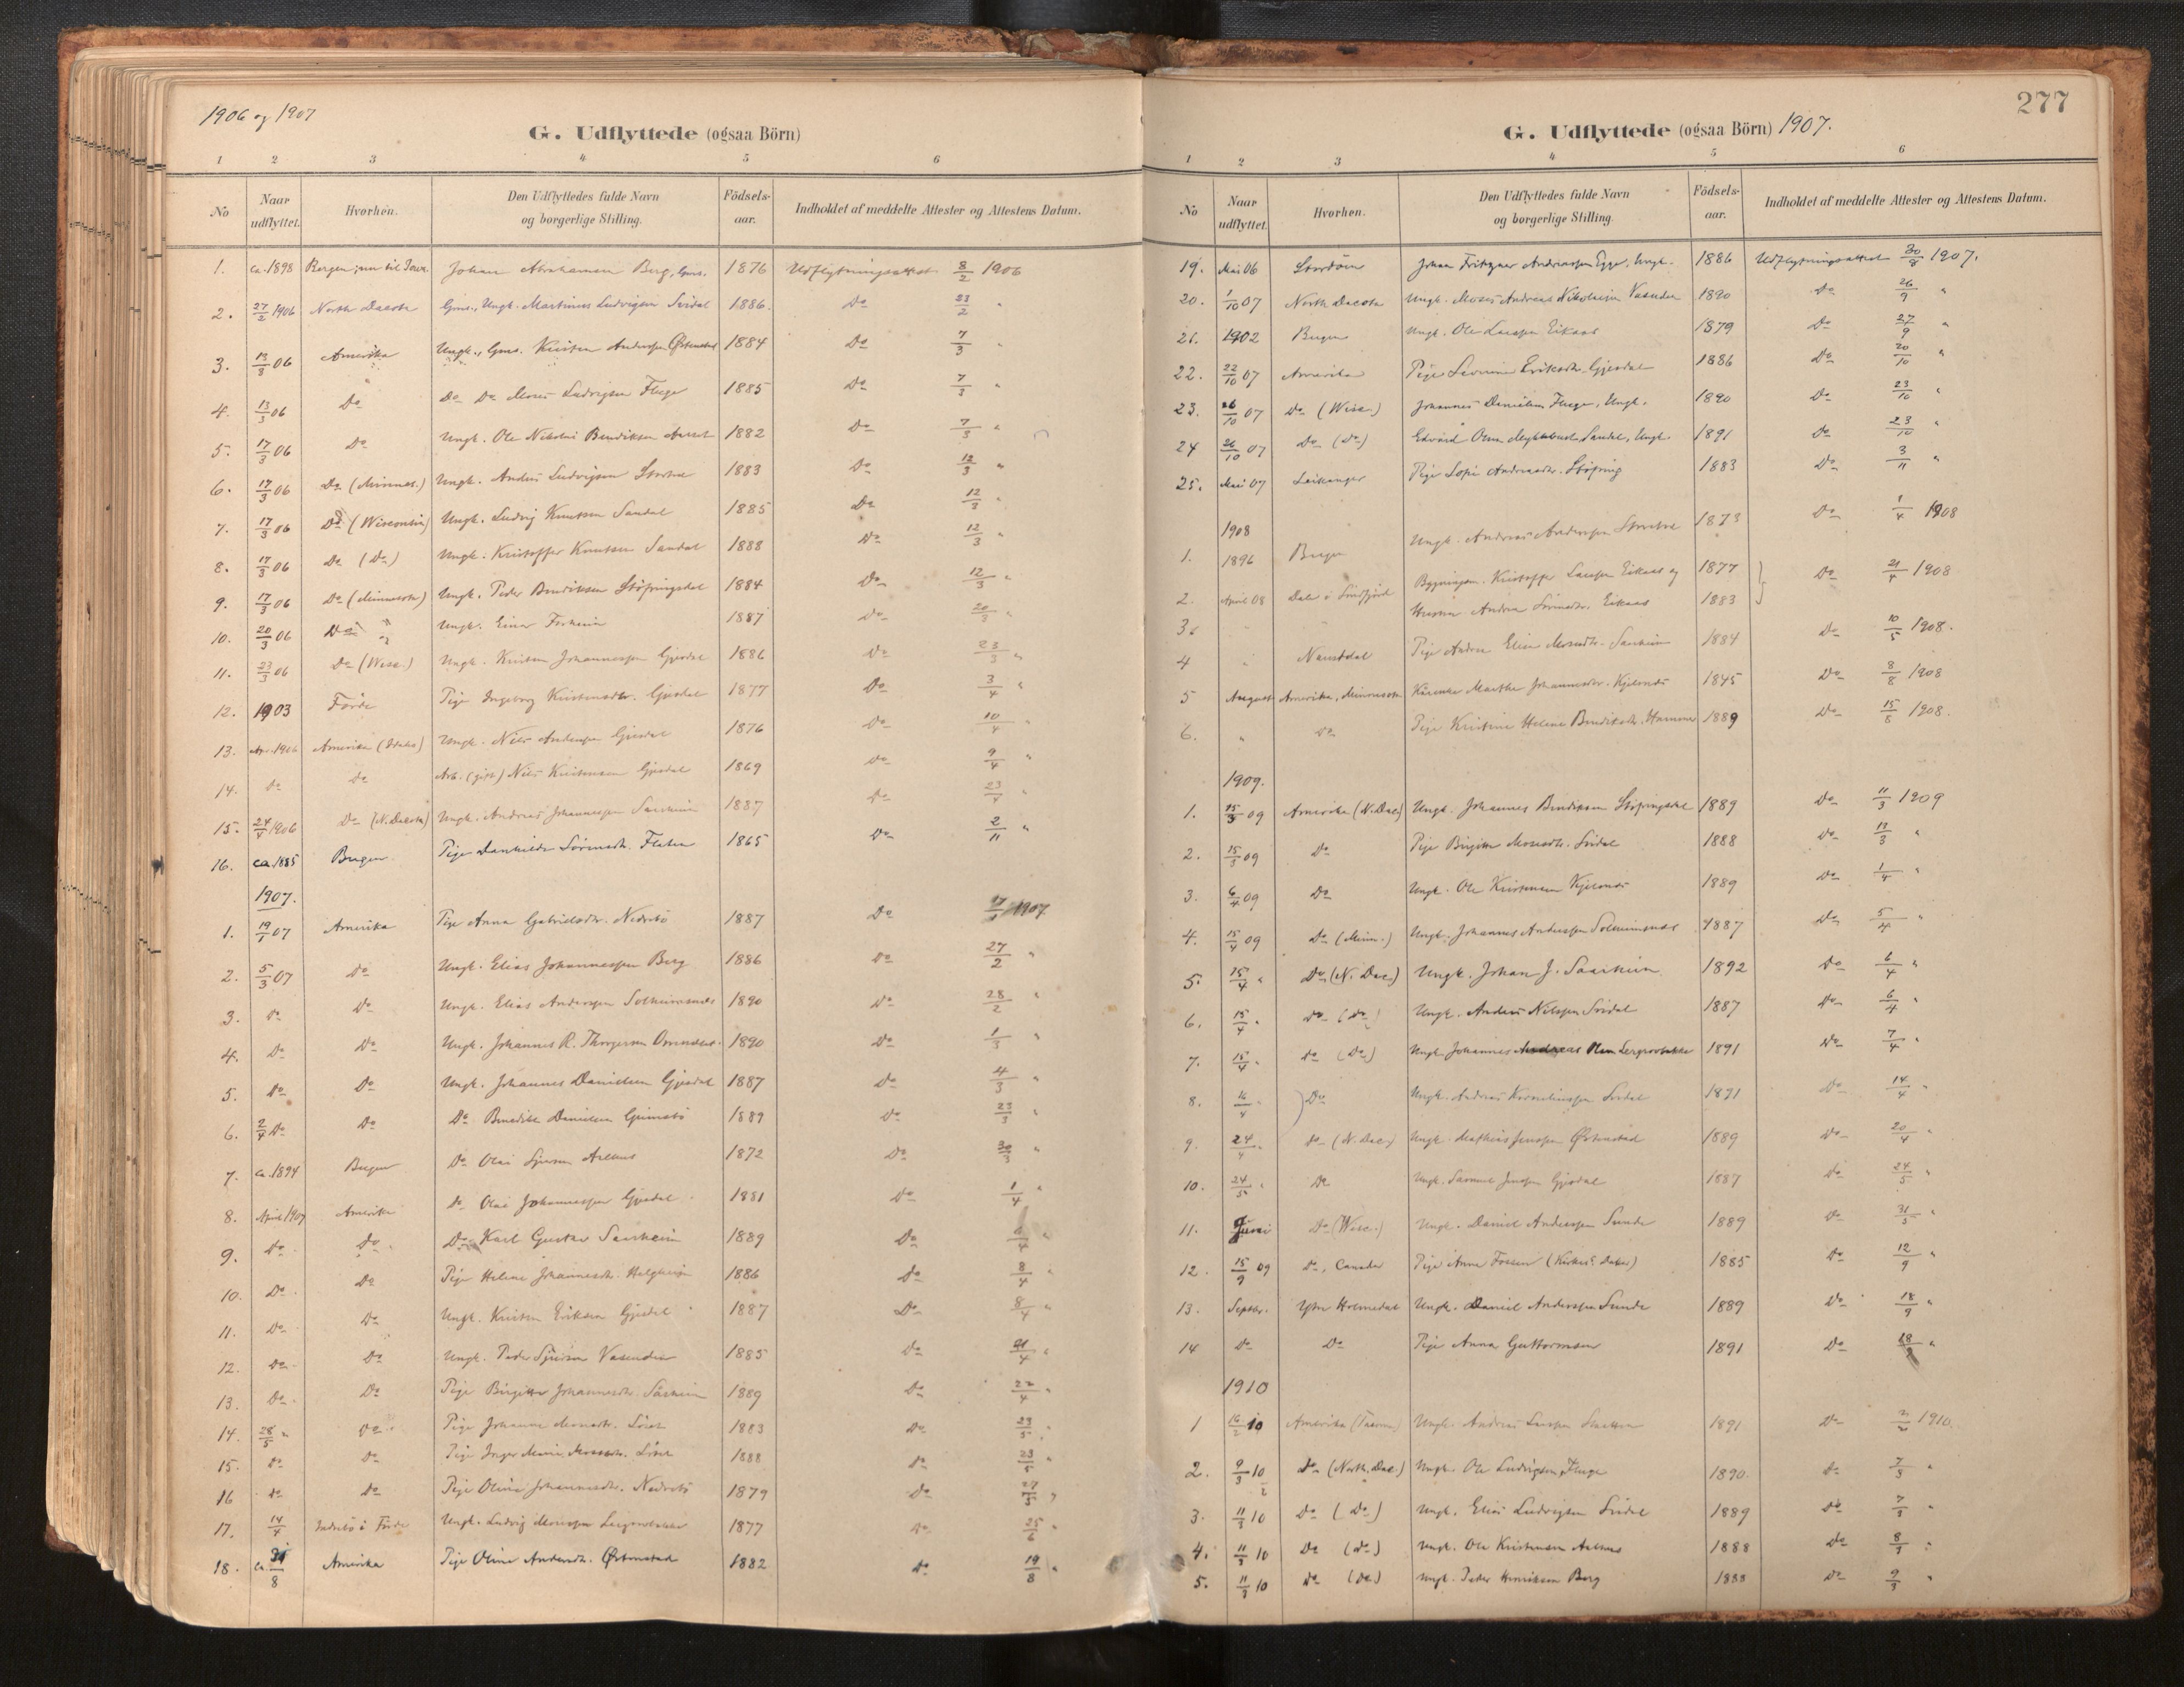 1906 og 1907
G. Udflyttede (ogsaa Börn)
1 2 3 4 5 6
No Naar udflyttet. Hvorhen. Den Udflyttedes fulde Navn og borgerlige Stilling. Födsels-aar. Indholdet af meddelte Attester og Attestens Datum.
1. ca. 1898 Bergen; nu til Johan Abrahamsen Berg, Gms. 1876 Udflytningsattest 8/2 1906
2. 27/2 1906 North Dacota Gms., Ungk. Martinus Ludvigsen Svidal 1886. Do 23/2 "
3. 13/3 06 Amerika Ungk., Gms. Kristen Andersen Østenstad 1884 Do 7/3 "
4. 13/3 06 Do Do Do Moses Ludvigsen Fluge 1885 Do 7/3 "
5. 17/3 06 Do Ungk. Ole Nikolai Bendiksen 1882 Do 7/3 "
6. 17/3 06 Do (Minnes.) Ungk. Anders Ludvigsen 1883 Do 12/3 "
7. 17/3 06 Do (Wisconsin) Ungk. Ludvig Knutsen Sandal 1885 Do 12/3 "
8. 17/3 06 Do (Do) Ungk. Kristoffer Knutsen Sandal 1888 Do 12/3 "
9. 17/3 06 Do (Minnesota) Ungk. Peder Bendiksen Støfringsdal 1884 Do 12/3 "
10. 20/3 06 Do " Ungk. Einar 1887 Do 20/3 "
11. 23/3 06 Do (Wisc.) Ungk. Kristen Johannessen Gjesdal 1886 Do 23/3 "
12. 1903 Förde Pige Ingeborg Kristensdtr. Gjesdal 1877 Do 3/4 "
13. Apr. 1906 Amerika (Idaho) Ungk. Nils Andersen Gjesdal 1876 Do 10/4 "
14. Do Do Arb. (gift) Nils Kristensen Gjesdal 1869 Do 9/4 "
15. 24/4 1906 Do (N. Dacota) Ungk. Andreas Johannessen Saarheim 1887 Do 23/4 "
16. ca. 1885 Bergen Pige Sörensdtr. Flaten 1865 Do 2/11 "
1907.
1. 19/ 07 Amerika Pige Anna Gabrielsdtr. Nedrebö 1887 Do 17/ 1907
2. 5/3 07 Do Ungk. Elias Johannessen Berg 1886 Do 27/2 "
3. Do Do Ungk. Elias Andersen Solheimsnes 1890 Do 28/2 "
4. Do Do Ungk. Johannes R. Thorgersen 1890 Do 1/3 "
5. Do Do Ungk. Johannes Danielsen Gjesdal 1887 Do 4/3 "
6. 2/4 Do Do Do Benedikt Danielsen Grimsbö 1889 Do 23/3 "
7. ca. 1894 Bergen Do Olai Sjursen 1872 Do 30/3 "
8. April 1907 Amerika Do Olai Johannessen Gjesdal 1881 Do 1/4 "
9. Do Do Do Karl Gustav Saarheim 1889 Do 6/4 "
10. Do Do Pige Helene Johannesdtr. Helgheim 1886 Do 8/4 "
11. Do Do Ungk. Kristen Eriksen Gjesdal 1887 Do 8/4 "
12. Do Do Ungk. Peder Sjursen Vasenden 1885 Do /4 "
13. Do Do Pige Birgitte Johannesdtr. Sårheim 1889 Do 22/4 "
14. 28/5 " Do Pige Johanne Monsdtr. 1883 Do 23/5 "
15. Do Do Pige Inger Marie 1888 Do 23/5 "
16 Do Do Pige Oline Johannesdtr. Nedrebö 1879 Do 27/5 "
17. 14/4 i Förde Ungk. Ludvig Mosessen 1877 Do 25/6 "
18. ca. 31/8 Amerika Pige Oline Andersdtr. Østenstad 1882 Do 19/8 "
277
G. Udflyttede (ogsaa Börn) 1907.
1 2 3 4 5 6
No Naar udflyttet. Hvorhen. Den Udflyttedes fulde Navn og borgerlige Stilling. Födsels-aar. Indholdet af meddelte Attester og Attestens Datum.
19. Mai 06 Johan Fritzner Andreassen Egge, Ungk. 1886 Udflytningsattest 30/8 1907.
20. 1/10 07 North Dacota Ungk. Moses Andreas Nikolaisen Vasenden 1890 Do 26/9 "
21. 1902 Bergen Ungk. Ole Larssen Eikaas 1879 Do 27/9 "
22. 22/10 07 Amerika Pige Severine Eriksdtr. Gjesdal 1886 Do 20/10 "
23. 26/10 07 Do (Wisc.) Johannes Danielsen Fluge, Ungk. 1890 Do 23/10 "
24 26/10 07 Do (Do) Edvard Olsen Sandal, Ungk. 1891 Do 23/10 "
25. Mai 07 Leikanger Pige Sofie Andreasdtr. Støfring 1883 Do 3/11 "
1908
1. 1896 Bergen Ungk. Andreas Anderssen 1873 Do 1/4 1908
2. April 08 Dale i Söndfjord Bygningsm. Kristoffer Larssen Eikaas og 1877 Do 21/4 1908
3. " Hustru Andrea Sörensdtr. Eikaas 1883
4 " Namdal Pige Andrea Elise Mosesdtr. Saarheim 1884 Do 10/5 1908.
5 August Amerika, Minnesota Marthe Johannesdtr. Kjelsnes 1845 Do 8/8 1908
6. " Do Pige Kristine Helene Bendiksdtr. 1889 Do 15/8 1908.
1909.
1. 15/3 09 Amerika (N. Dac.) Ungk. Johannes Bendiksen Støfringsdal 1889 Do 11/3 1909
2. 15/3 09 Do Pige Birgitte Mosesdtr. Svidal 1888 Do 12/3 "
3. 6/4 09 Do Ungk. Ole Kristensen Kjelsnes 1889 Do 1/4 "
4. 15/4 09 Do (Minn.) Ungk. Johannes Anderssen Solheimsnes 1887 Do 5/4 "
5. 15/4 " Do (N. Dac.) Ungk. Johan J. Saarheim 1892 Do 6/4 "
6. 15/4 " Do (Do) Ungk. Anders Nilssen Svidal 1887 Do 6/4 "
7. 15/4 " Do (Do) Ungk. Johannes Andreas Olsen 1891 Do 7/4 "
8. 16/4 " Do Ungk. Andreas Korneliussen Svidal 1891 Do 14/4 "
9. 24/4 " Do (N. Dac.) Ungk. Mathias Jenssen Østenstad 1889 Do 20/4 "
10. 24/5 " Do Ungk. Samuel Jenssen Gjesdal 1887 Do 24/5 "
11. Juni Do (Wisc.) Ungk. Daniel Anderssen Sunde 1889 Do 31/5 "
12. 15/9 09 Do, Canada Pige Anna Fossen 1885 Do 12/9 "
13. Septbr. Ytre Holmedal Ungk. Daniel Anderssen Sunde 1889 Do 18/9 "
14 Do Do Pige Anna Guttormsen 1891 Do 18/9 "
1910
1 16/2 10 Amerika (Tacoma) Ungk. Andreas Larssen 1891 Do /2 1910
2. 9/3 10 Do (North. Dac.) Ungk. Ole Ludvigsen Fluge 1890 Do 7/3 "
3. 11/3 10 Do (Do) Ungk. Elias Ludvigsen Svidal 1889 Do 7/3 "
4. 11/3 10 Do (Do) Ungk. Ole Kristensen 1888 Do 8/3 "
5. 11/3 10 Do (Do) Ungk. Peder Henriksen Berg 1888 Do 9/3 "